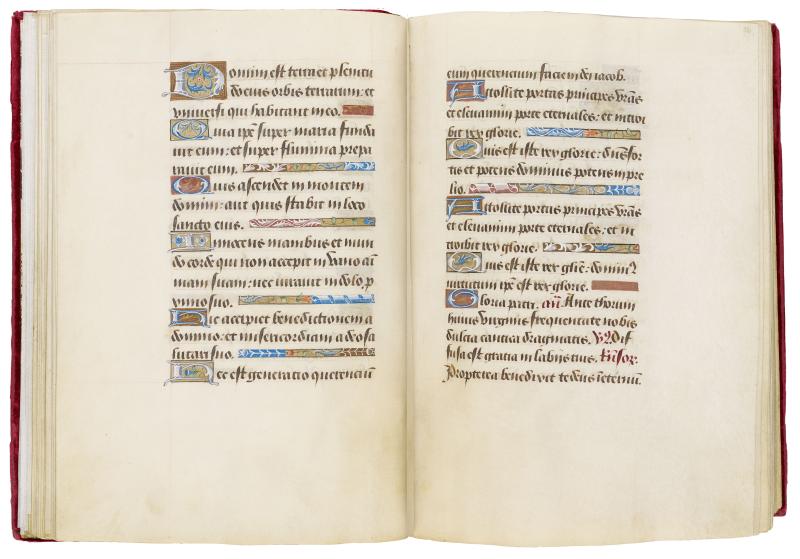 Domini est terra et plenitu
do eius orbis terrarum: et
universi qui habitant in eo.
Quia ipse super maria funda
vit eum: et super flumina prepa
ravit eum.
Quis ascendet in montem
domini: aut quis stabit in loco
sancto eius.
Innocens manibus et mun
do corde qui non accepit in vano aīm
mam suam: nec iuravit in dolo p
ximo suo.
Hic accipiet benedictionem a
domino: et misericordiam a deo sa
lutari suo.
Hec est generatio querenciū
eum querencium faciem dei iacob.
Attollite portas principes vr̄as
et elevamini porte eternales: et introi
bit rex glorie.
Quis est iste rex glorie: dn̄s for
tis et potens dominus potens in pre
lio.
Attollite portas principes vr̄as
et elevamini porte eternales: et in
troibit rex glorie.
Quis est iste rex glīe: domin9
virtutum ip̄e est rex glorie.
Gloria patri. añ. Ante thorum
huius virginis frequentate nobis
dulcia cantica dragmatis. Dif
fusa est gratia in labiis tuis.
Propterea benedixit te deus ineternū.